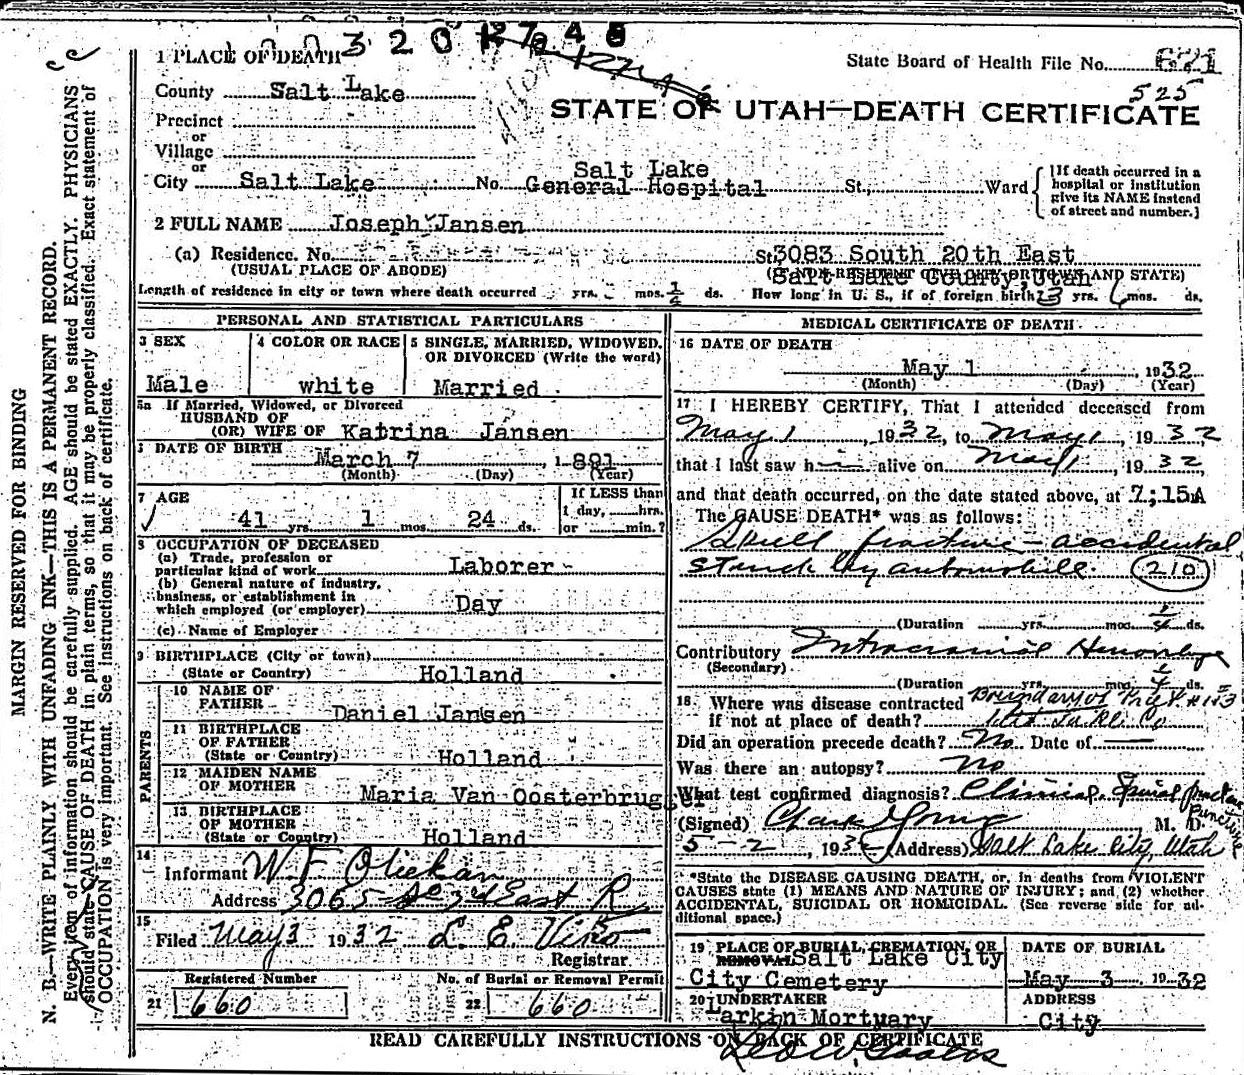 3 2 0 12 7 4 8
1 PLACE OF DEATH
State Board of Health File No. 621
525
County Salt Lake
STATE OF UTAH—DEATH CERTIFICATE
Precinct
or
Village
or
City Salt Lake No. Salt Lake General Hospital St., Ward
[If death occurred in a
hospital or institution
give its NAME instead
of street and number.]
2 FULL NAME Joseph Jansen
(a) Residence. No. St. 3083 South 20th East
(USUAL PLACE OF ABODE)
Salt Lake County, Utah
Length of residence in city or town where death occurred yrs. mos. 1/4 ds. How long in U. S., if of foreign birth? 23 yrs. 6 mos. ds.
PERSONAL AND STATISTICAL PARTICULARS
3 SEX
Male
4 COLOR OR RACE
white
5 SINGLE, MARRIED, WIDOWED,
OR DIVORCED (Write the word)
Married
5a If Married, Widowed, or Divorced
HUSBAND OF
(OR) WIFE OF Katrina Jansen
DATE OF BIRTH
March 7, 1891
(Month) (Day) (Year)
7 AGE
41 yrs. 1 mos. 24 ds.
If LESS than
1 day, hrs.
or min.?
8 OCCUPATION OF DECEASED
(a) Trade, profession or
particular kind of work Laborer
(b) General nature of industry,
business, or establishment in
which employed (or employer) Day
(c) Name of Employer
9 BIRTHPLACE (City or town)
(State or Country) Holland
PARENTS
10 NAME OF
FATHER
Daniel Jansen
11 BIRTHPLACE
OF FATHER
(State or Country) Holland
12 MAIDEN NAME
OF MOTHER
Maria Van Oosterbrugger
13 BIRTHPLACE
OF MOTHER
(State or Country) Holland
14
Informant W. F.
Address 3065 So 3rd East R
15
Filed May 3 1932 L. E. Viko
Registrar.
Registered Number
21 660
No. of Burial or Removal Permit
22 660
MEDICAL CERTIFICATE OF DEATH
16 DATE OF DEATH
May 1, 1932
(Month) (Day) (Year)
17 I HEREBY CERTIFY, That I attended deceased from
May 1, 1932, to May 1, 1932
that I last saw him alive on May 1, 1932,
and that death occurred, on the date stated above, at 7;15A
The CAUSE DEATH* was as follows:
Skull fracture - accidental
struck by automobile. 210
(Duration yrs. mos. 1/4 ds.
Contributory Intracranial Hemorrhage
(Secondary)
(Duration yrs. mos. 1/4 ds.
18 Where was disease contracted
if not at place of death?
Did an operation precede death? No Date of —
Was there an autopsy? No
What test confirmed diagnosis? Clinical. Spinal puncture
(Signed) M. D.
5-2, 1932 (Address) Salt Lake City, Utah
*State the DISEASE CAUSING DEATH, or, in deaths from VIOLENT
CAUSES state (1) MEANS AND NATURE OF INJURY; and (2) whether
ACCIDENTAL, SUICIDAL OR HOMICIDAL. (See reverse side for ad-
ditional space.)
19 PLACE OF BURIAL, CREMATION, OR
REMOVAL Salt Lake City
City Cemetery
DATE OF BURIAL
May 3 1932
20 UNDERTAKER
Larkin Mortuary
ADDRESS
City
READ CAREFULLY INSTRUCTIONS ON BACK OF CERTIFICATE
MARGIN RESERVED FOR BINDING
N. B.—WRITE PLAINLY WITH UNFADING INK—THIS IS A PERMANENT RECORD.
Every item of information should be carefully supplied. AGE should be stated EXACTLY. PHYSICIANS
should state CAUSE OF DEATH in plain terms, so that it may be properly classified. Exact statement of
OCCUPATION is very important. See instructions on back of certificate.